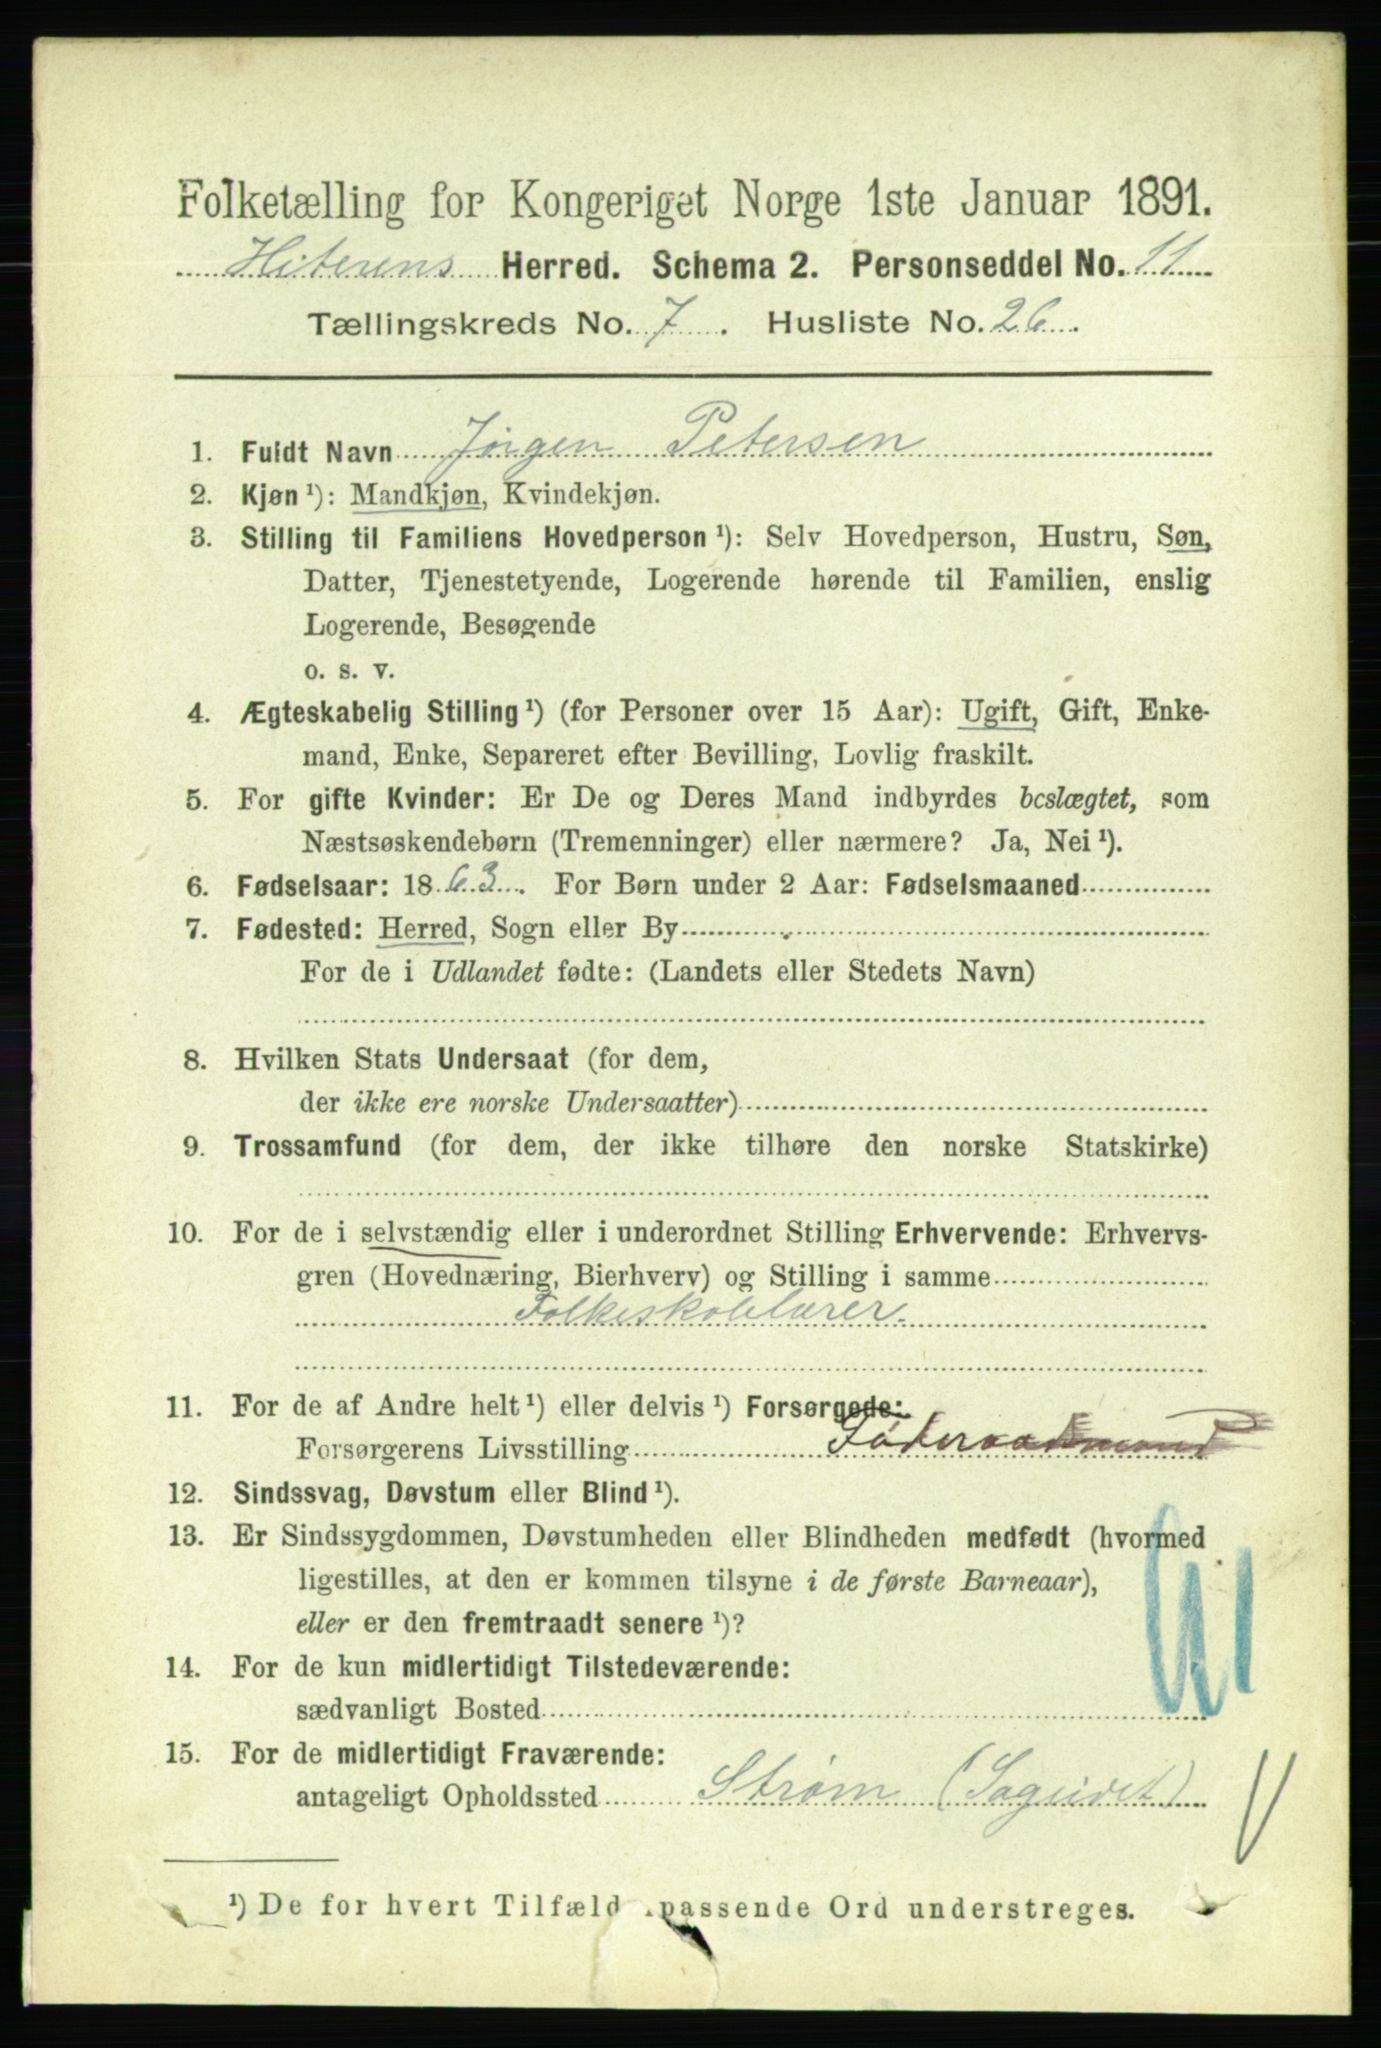 Folketælling for Kongeriget Norge 1ste Januar 1891.
Hiterens Herred. Schema 2. Personseddel No. 11
Tællingskreds No. 7. Husliste No. 26.
1. Fuldt Navn Jörgen Petersen
2. Kjøn ¹): Mandkjøn, Kvindekjøn.
3. Stilling til Familiens Hovedperson ¹): Selv Hovedperson, Hustru, Søn,
Datter, Tjenestetyende, Logerende hørende til Familien, enslig
Logerende, Besøgende
o. s. v.
4. Ægteskabelig Stilling ¹) (for Personer over 15 Aar): Ugift, Gift, Enke-
mand, Enke, Separeret efter Bevilling, Lovlig fraskilt.
5. For gifte Kvinder: Er De og Deres Mand indbyrdes beslægtet, som
Næstsøskendebørn (Tremenninger) eller nærmere? Ja, Nei ¹).
6. Fødselsaar: 1863. For Børn under 2 Aar: Fødselsmaaned
7. Fødested: Herred, Sogn eller By
For de i Udlandet fødte: (Landets eller Stedets Navn)
8. Hvilken Stats Undersaat (for dem,
der ikke ere norske Undersaatter)
9. Trossamfund (for dem, der ikke tilhøre den norske Statskirke)
10. For de i selvstændig eller i underordnet Stilling Erhvervende: Erhvervs-
gren (Hovednæring, Bierhverv) og Stilling i samme
Folkeskolelærer.
11. For de af Andre helt ¹) eller delvis ¹) Forsørgede:
Forsørgerens Livsstilling Föderaadmand
12. Sindssvag, Døvstum eller Blind ¹).
13. Er Sindssygdommen, Døvstumheden eller Blindheden medfødt (hvormed
ligestilles, at den er kommen tilsyne i de første Barneaar),
eller er den fremtraadt senere ¹)?
14. For de kun midlertidigt Tilstedeværende:
sædvanligt Bosted
15. For de midlertidigt Fraværende:
antageligt Opholdssted Strøm (Sagiidet)
¹) De for hvert Tilfæld passende Ord understreges.